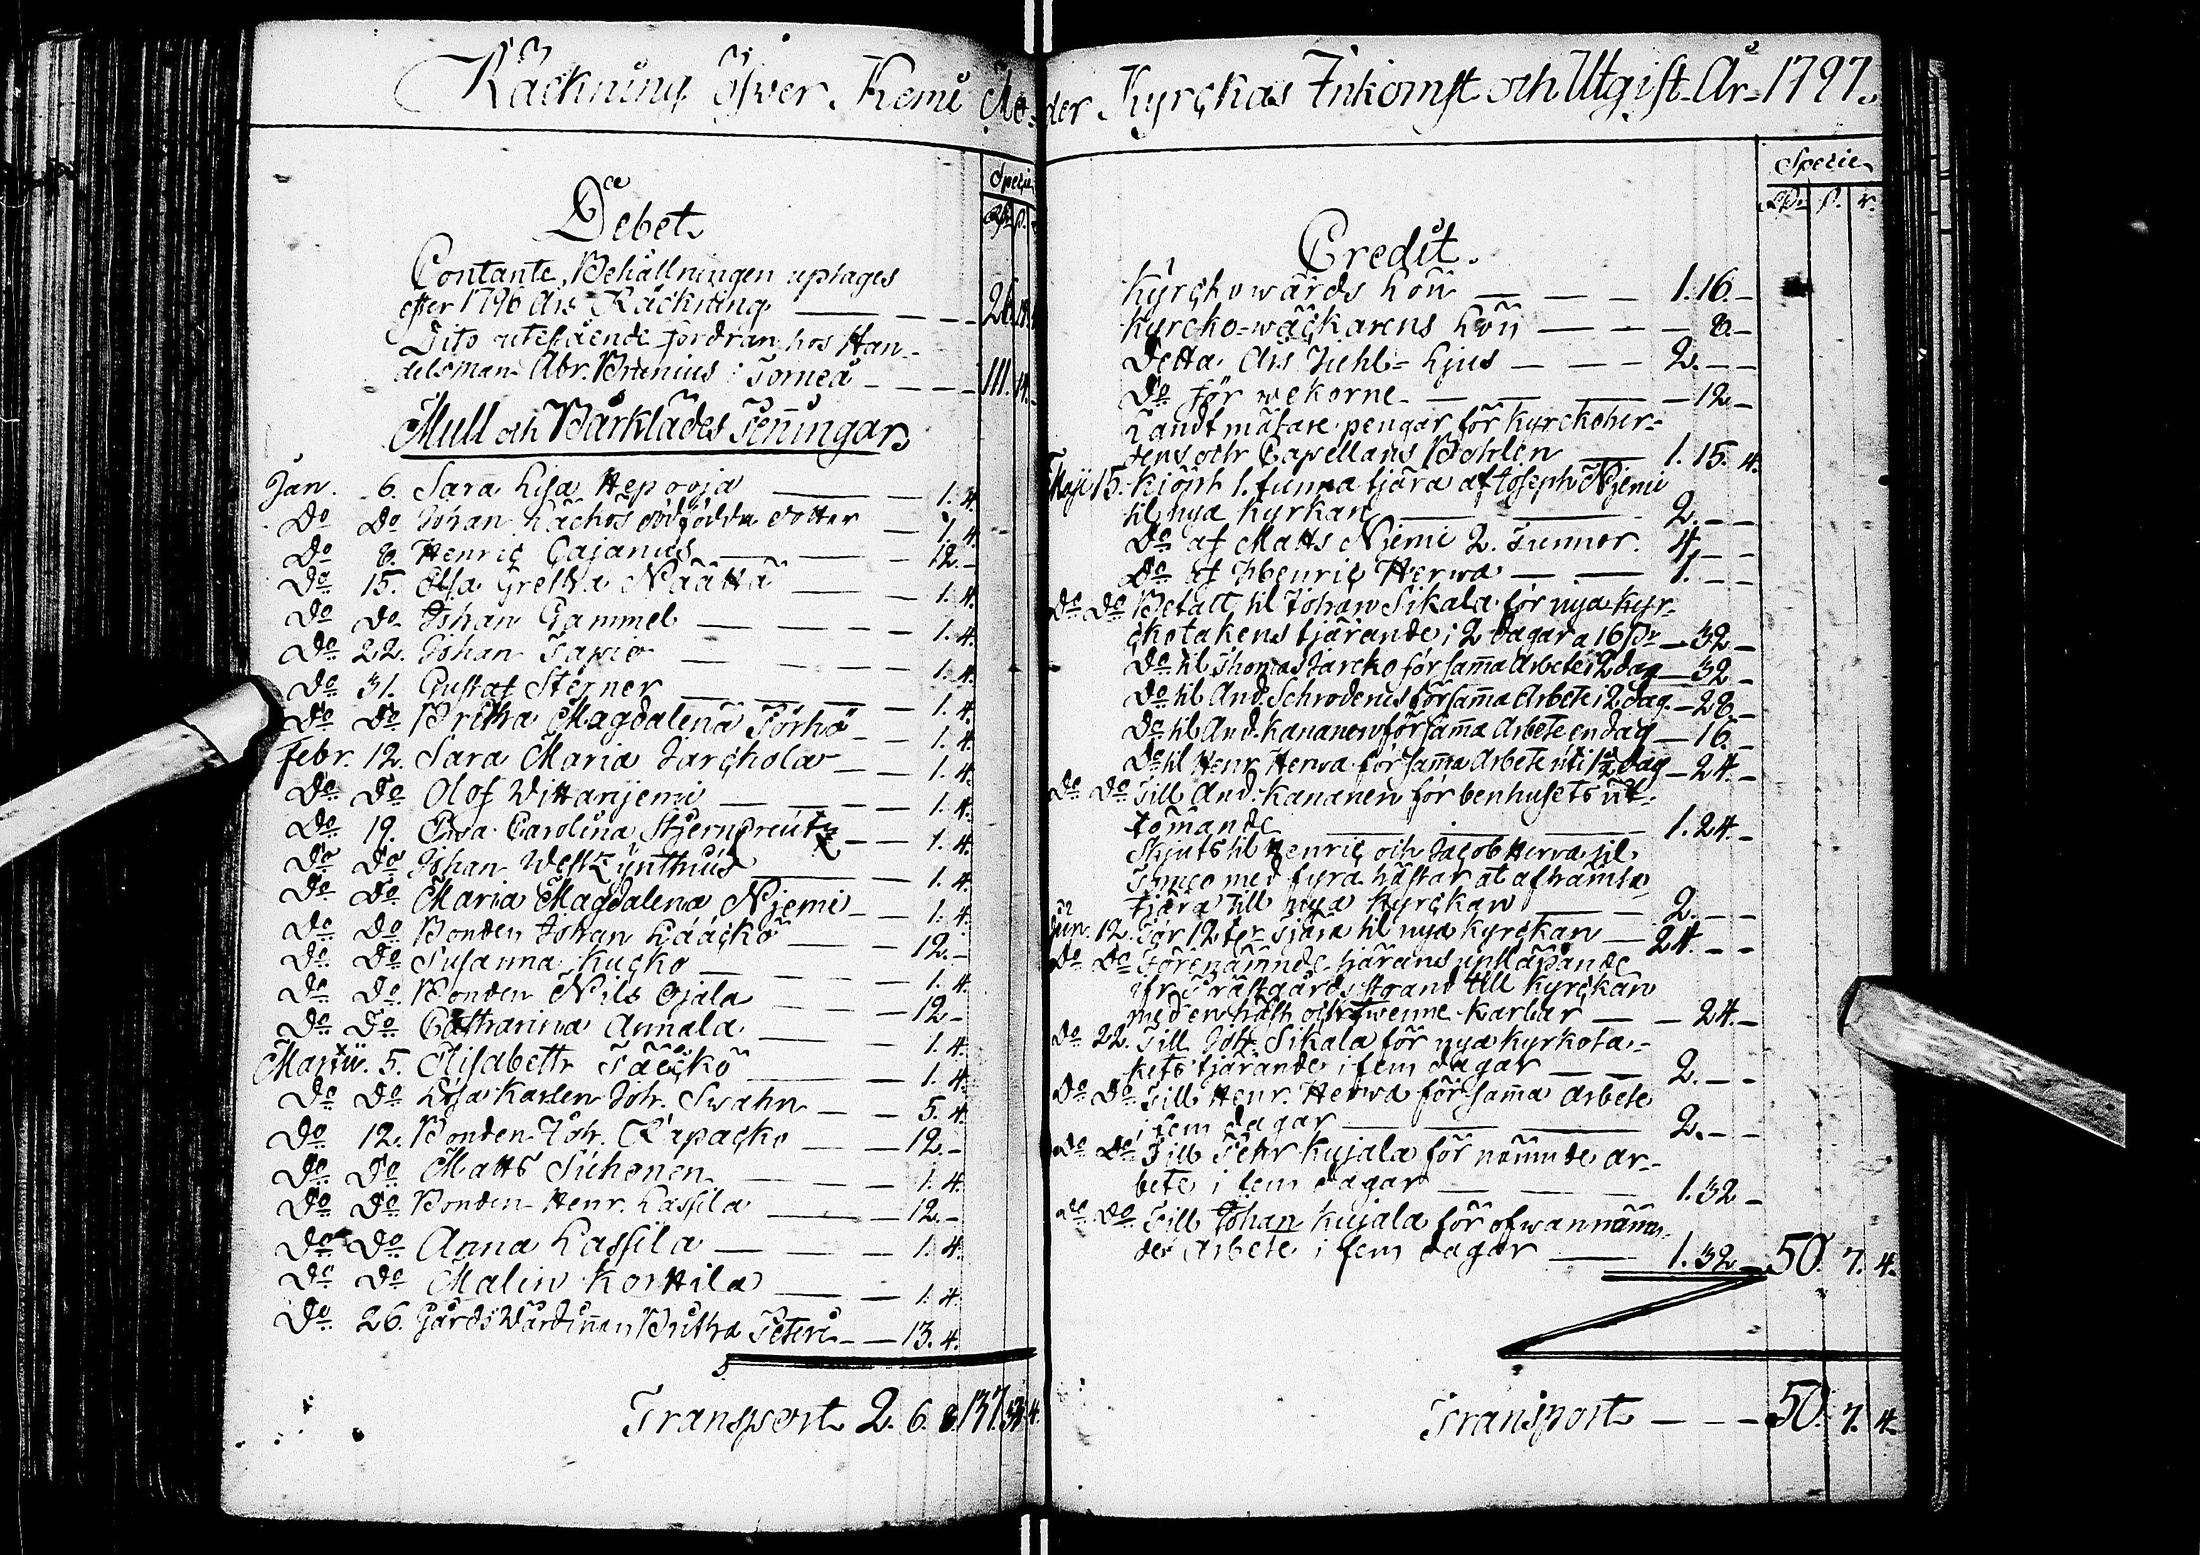 Räckning öfver Kemi Mo-
der Kyrckas Inkomst och Utgift År 1797.
Specie
Debet
Contante Behållningen uptages
efter 1796 Års Räckning — — — 26.
Dito utestående fordran hos Han-
delsman Abr. Brunius i Torneå — — — 111.
Mull och Bårklädes Peñingar
Jan. 6. Sara Lisa Hepooja — — 1. 4.
Do Do Johan Läckos dödfödda dotter — 1. 4.
Do 8. Henric Cajanus — — 12.-
Do 15. Elsa Gretha Näättä — — 1. 4.
Do Do Johan Gammel — — — 1. 4.
Do 22. Johan Tapio — — — 1. 4.
Do 31. Gustaf Sterner — — — 1. 4.
Do Do Britha Magdalena Pörhö — 1. 4.
Febr. 12. Sara Maria Jarchola — — 1. 4.
Do Do Olof Wittaniemi — — — 1. 4.
Do 19. Eva Carolina Stjerncreutz — — 1. 4.
Do Do Johan — — 1. 4.
Do Do Maria Magdalena Njemi — — 1. 4.
Do Do Bonden Johan Lääckö — — 12.-
Do Do Susanna Kucko — — — 1. 4.
Do Do Bonden Nils Ojala — — 12.-
Do Do Catharina Annala — — 1. 4.
Martii 5. Elisabeth — — 1. 4.
Do Do Lösa Karlen Joh. Swahn — — 5. 4.
Do 12. Bonden Joh. — — 12.-
Do Do Matts Tuhonen — — — 1. 4.
Do Do Bonden Henr. Lassila — — 12.-
Do Do Anna Lassila — — — 1. 4.
Do Do Malin Korttila — — 1. 4.
Do 26. Gårds Wärdiñan Britha Peteri — — 13. 4.
Transport 2. 6. 8. 137. 32. 4.
Specie
Credit.
Kyrckowärds Lön — — — 1. 16.-
Kyrcko-wäckarens Lön — — — 8.-
Detta Års Juhl-Ljus — — — 2.--
Do för wekorne — — — 12.-
Landtmätare pengar för Kyrckoher-
dens och Capellans Bohlen — 1. 15. 4.
Maji 15. Kiöpt 1. tunna tjära af Joseph Njemi
til nya Kyrkan — — 2.--
Do af Matts Njemi 2. Tunnor. 4.--
Do af Henric Herwa — — 1.--
Do Do Betalt til Johan Sikala för nya Kyr-
ckotakens tjärande i 2 dagar a 16 — 32.-
Do til Thomas Jarcko för sam̃a Arbete i 2 dag — 32.-
Do til And. Schroderus för sam̃a Arbete i 2 dag — 28.-
Do til And. Kananen för sam̃a Arbete en dag — 16.-
Do til Henr. Herwa för sam̃a Arbete uti 1½ dag — 24.-
Do Do Till And. Kananen för benhusets ut-
tömande — — — 1. 24.-
Skjuts til Henric och Jacob Herva til
Torneo med fyra hästar at afhämta
tjära till nya Kyrckan — — 2.--
Jun. 12. För 12 tr tjära til nya Kyrckan — 24.--
Do Do Förenämnde tjärans upsläpande
ifr. Prästgårds strand till Kyrckan
med en häst och twenne karlar — — 24.-
Do 22. Till Joh. Sikala för nya Kyrkota-
kets tjärande i fem dagar — — 2.--
Do Do Till Henr. Herwa för sam̃a Arbete
i fem dagar — — — 2.--
Do Do Till Pehr Kujala för nämnde ar-
bete i fem dagar — — — 1. 32.-
Do Do Till Johan Kujala för ofwannämn-
de Arbete i fem dagar — 1. 32.- 50. 7. 4.
Transport — — — 50. 7. 4.